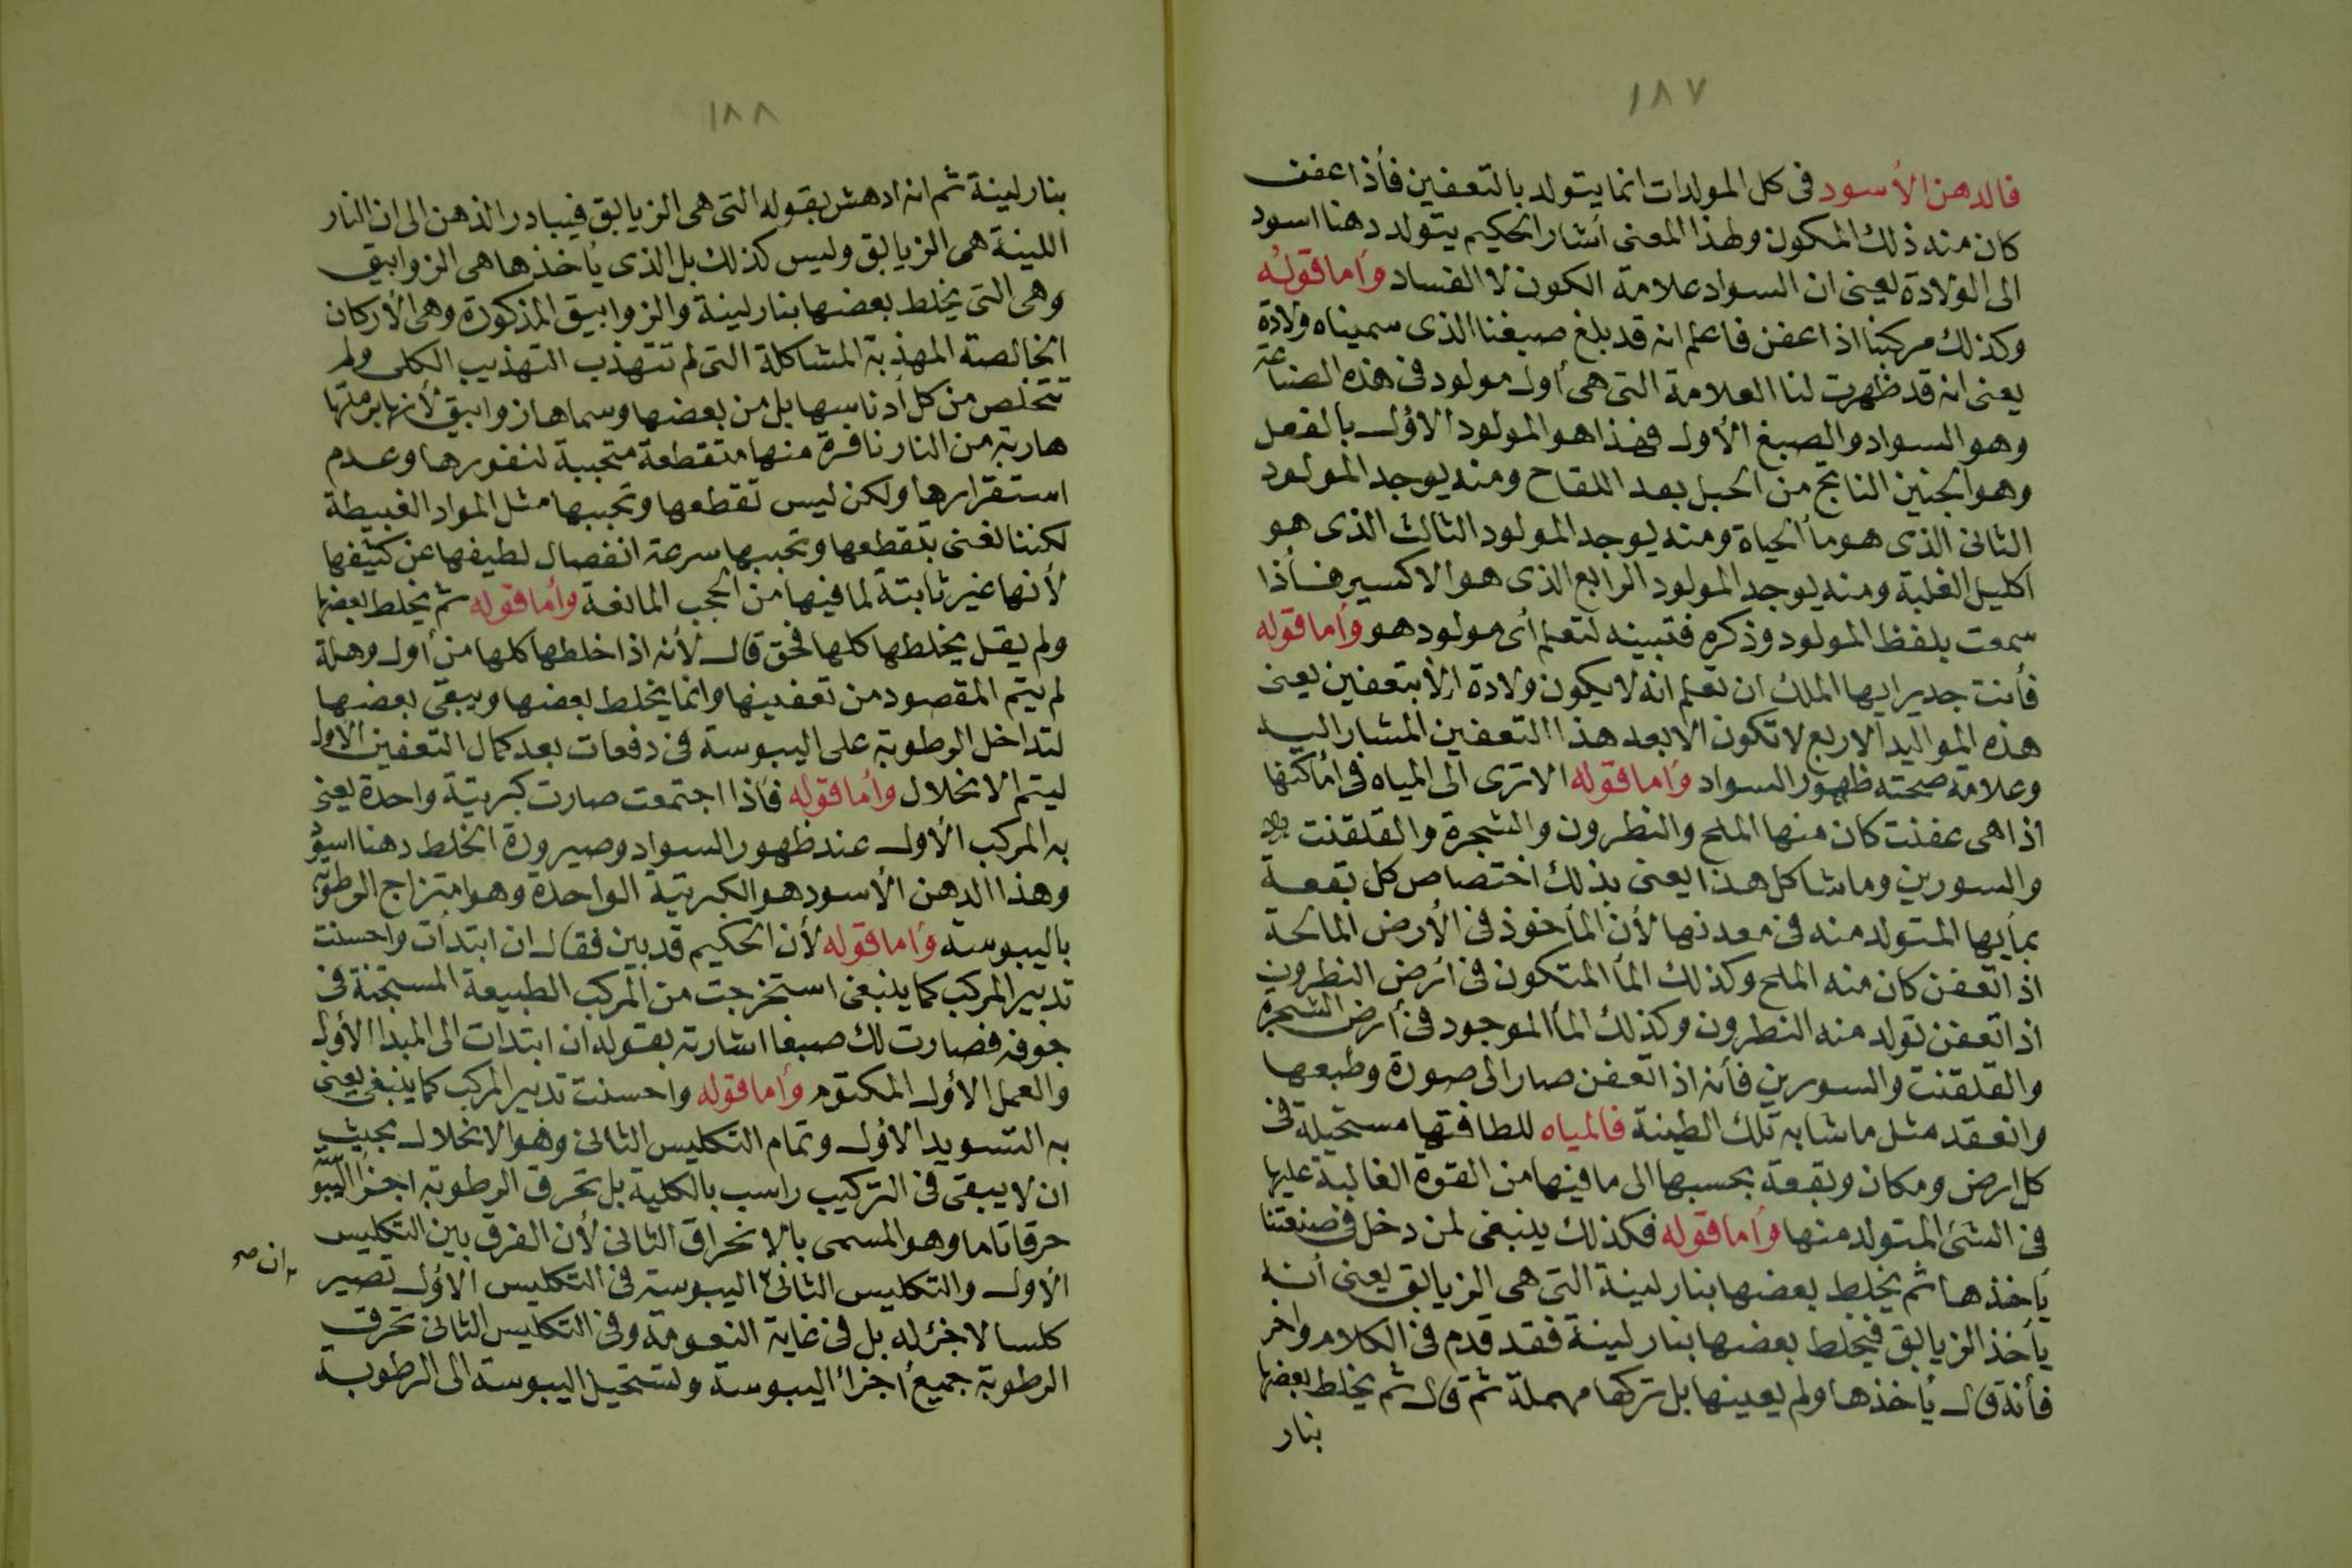 ١٨٧
فالدهن الأسود في كل المولدات انما يتولد بالتعفين فأذا عفن
كان منه ذلك المكون ولهذا المعنى أشار الحكيم يتولد دهنا اسود
الى الولادة يعنى ان السواد علامة الكون لا الفساد وأما قوله
وكذلك مركبنا اذا عفن فاعلم انه قد بلغ صبغنا الذى سميناه ولادة
يعنى انه قد ظهرت لنا العلامة التى هى أول مولود فى هذه الصناعة
وهو السواد والصبغ الأول فهذا هو المولود الاؤل بالفعل
وهو الجنين الناتج من الحبل بعد اللقاح ومنه يوجد المولود
الثانى الذى هو مأ الحياة ومنه يوجد المولود الثالث الذى هو
اكليل الغلبة ومنه يوجد المولود الرابع الذى هو الاكسير فأذا
سمعت بلفظ المولود وذكره فتبينه لتعلم أى مولود هو وأما قوله
فأنت جدير ايها الملك ان تعلم انه لا يكون ولادة الا بتعفين يعنى
هذه المواليد الاربع لا تكون الا بعد هذا التعفين المشار اليه
وعلامة صحته ظهور السواد وأما قوله الا ترى الى المياه فى أماكنها
اذا هى عفنت كان منها الملح والنطرون والشجرة والقلقنت
والسورين وما شاكل هذا يعنى بذلك اختصاص كل بقعة
بمأيها المتولد منه فى معدنها لأن المأخوذ فى الأرض المالحة
اذا تعفن كان منه الملح وكذلك المأ المتكون فى أرض النطرون
اذا تعفن تولد منه النطرون وكذلك المأ الموجود فى أرض الشجرة
والقلقنت والسورين فأنه اذا تعفن صار الى صورة وطبعها
وانعقد مثل ما شابه تلك الطينة فالمياه للطافتها مستحيلة فى
كل ارض ومكان وبقعة بحسبها الى ما فيها من القوة الغالبة عليها
فى الشئ المتولد منها وأما قوله فكذلك ينبغى لمن دخل فى صنعتنا
يأخذها ثم يخلط بعضها بنار لينة التى هى الزيابق يعنى أنه
يأخذ الزيابق فيخلط بعضها بنار لينة فقد قدم فى الكلام واخر
فأنه قال يأخذها ولم يعينها بل تركها مهملة ثم قال ثم يخلط بعضها
بنار
١٨٨
بنار لينة ثم انه ادهش بقوله التى هى الزيابق فيبادر الذهن الى ان النار
اللينة هى الزيابق وليس كذلك بل الذى يأخذها هى الزوابيق
وهى التى يخلط بعضها بنار لينة والزوابيق المذكورة وهى الأركان
الخالصة المهذبة المشاكلة التى لم تتهذب التهذيب الكلى ولم
تتخلص من كل أدناسها بل من بعضها وسماها زوابيق لأنها برمتها
هاربة من النار نافرة منها متقطعة متجببة لنفورها وعدم
استقرارها ولكن ليس تقطعها وتجببها مثل المواد الغبيطة
لكننا نعنى بتقطعها وتجببها سرعة انفصال لطيفها عن كثيفها
لأنها غير ثابتة لما فيها من الحجب المانعة وأما قوله ثم يخلط بعضها
ولم يقل يخلطها كلها فحق قال لأنه اذا خلطها كلها من أول وهلة
لم يتم المقصود من تعفينها وانما يخلط بعضها ويبقى بعضها
لتداخل الرطوبة على اليبوسة فى دفعات بعد كمال التعفين الاول
ليتم الانحلال وأما قوله فأذا اجتمعت صارت كبريتية واحدة يعنى
به المركب الأول عند ظهور السواد وصيرورة الخلط دهنا اسود
وهذا الدهن الأسود هو الكبريتية الواحدة وهو امتزاج الرطوبة
باليبوسة وأما قوله لأن الحكيم قد بين فقال ان ابتدأت واحسنت
تدبير المركب كما ينبغى استخرجت من المركب الطبيعة المستجنة فى
جوفه فصارت لك صبغا اشارته بقوله ان ابتدات الى المبدا الأول
والعمل الاؤل المكتوم وأما قوله واحسنت تدبير المركب كما ينبغى يعنى
به التسويد الاؤل وتمام التكليس الثانى وهو الانحلال بحيث
ان لا يبقى فى التركيب راسب بالكلية بل تحرق الرطوبة اجزأ اليبوسة
حرقا تاما وهو المسمى بالانحراق الثانى لأن الفرق بين التكليس
الأول والتكليس الثانى اليبوسة فى التكليس الاؤل تصير
ان صح
كلسا لا جزء له بل فى غاية النعومة وفى التكليس الثانى تحرق
الرطوبة جميع أجزاء اليبوسة وتستحيل اليبوسة الى الرطوبة